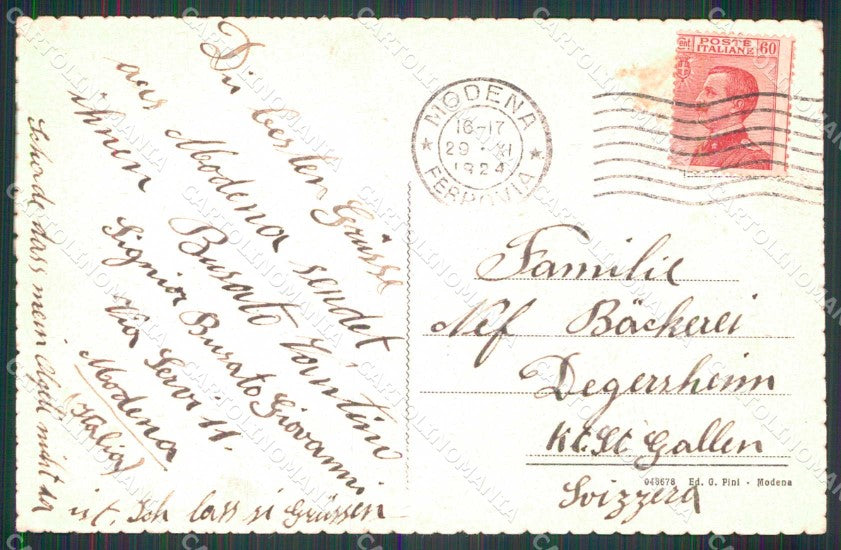 Die besten Grüsse
aus Modena sendet
ihnen Busato
Signior Busato Giovanni
Via Servi 11.
Modena
(Italia)
Schade dass mein nicht da
ist. Ich lass si Grüssen
MODENA
16-17
29 · XI
1924
FERROVIA
POSTE
ITALIANE
60
Familie
Nef Bäckerei
Degersheim
Kt. St Gallen
Svizzera
048678 Ed. G. Pini - Modena
CARTOLINOMANIA